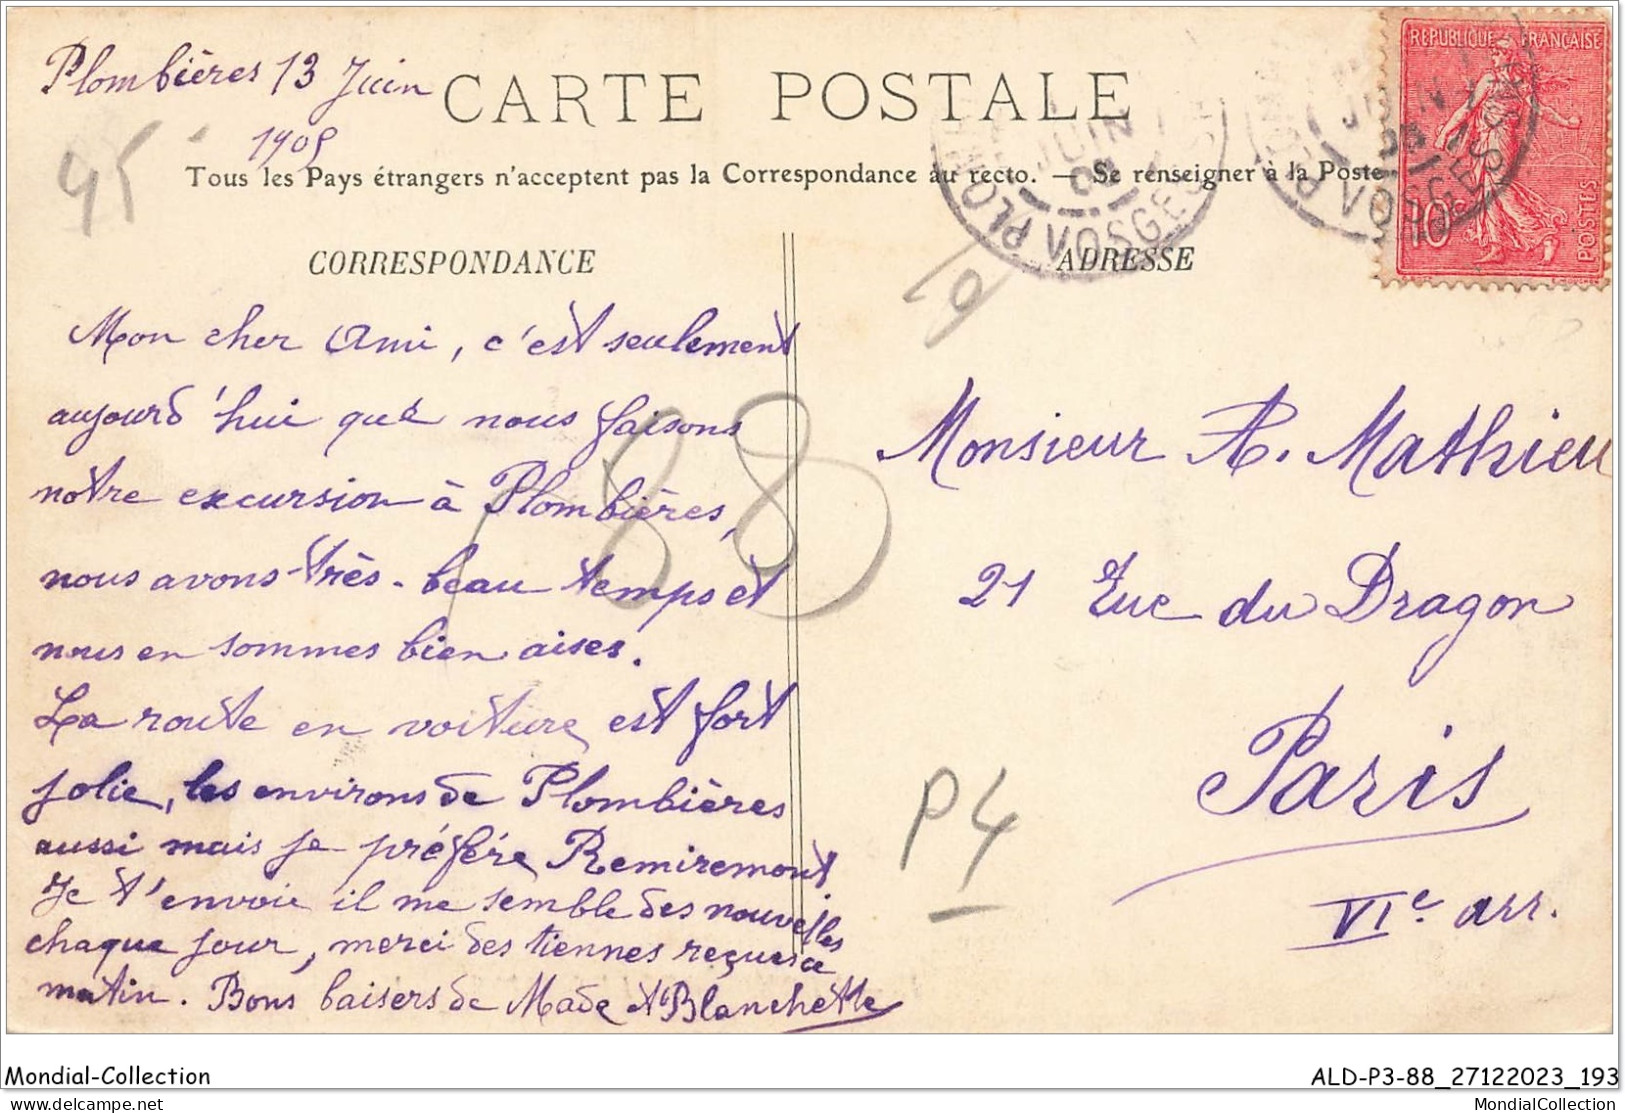 Plombières 13 Juin
1905
CARTE POSTALE
Tous les Pays étrangers n'acceptent pas la Correspondance au recto. — Se renseigner à la Poste
REPUBLIQUE FRANÇAISE
10c
POSTES
PLOMBIÈRES
JUIN
VOSGES
45
CORRESPONDANCE
ADRESSE
Mon cher Ami, c'est seulement
aujourd'hui que nous faisons
notre excursion à Plombières,
nous avons très-beau temps et
nous en sommes bien aises.
La route en voiture est fort
jolie, les environs de Plombières
aussi mais je préfère Remiremont
Je t'envoie il me semble des nouvelles
chaque jour, merci des tiennes reçues ce
matin. Bons baisers de Made & Blanchette
Monsieur A. Mathieu
21 Rue du Dragon
Paris
VIe arr.
88
P4
Mondial-Collection
ALD-P3-88_27122023_193
delcampe.net
MondialCollection